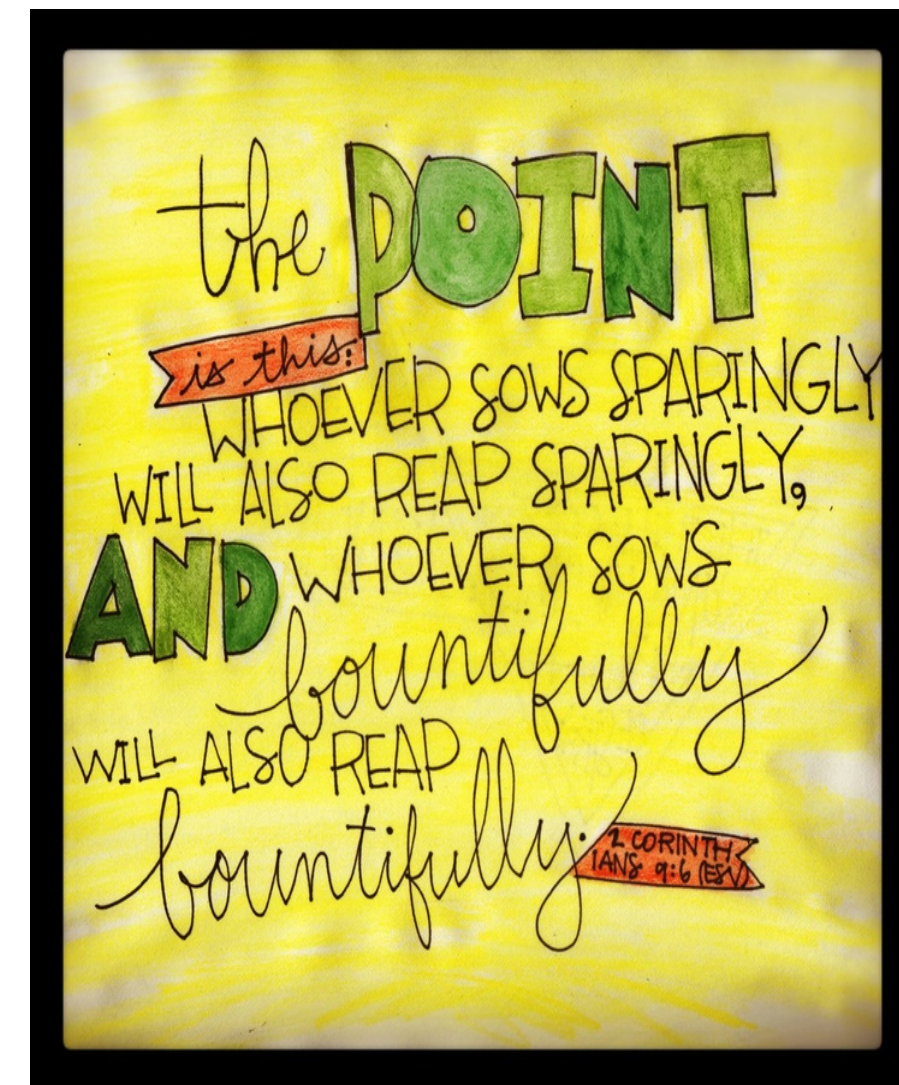 the POINT
is this:
WHOEVER SOWS SPARINGLY
WILL ALSO REAP SPARINGLY,
AND WHOEVER SOWS
bountifully
WILL ALSO REAP
bountifully.
2 CORINTH
IANS 9:6 (ESV)